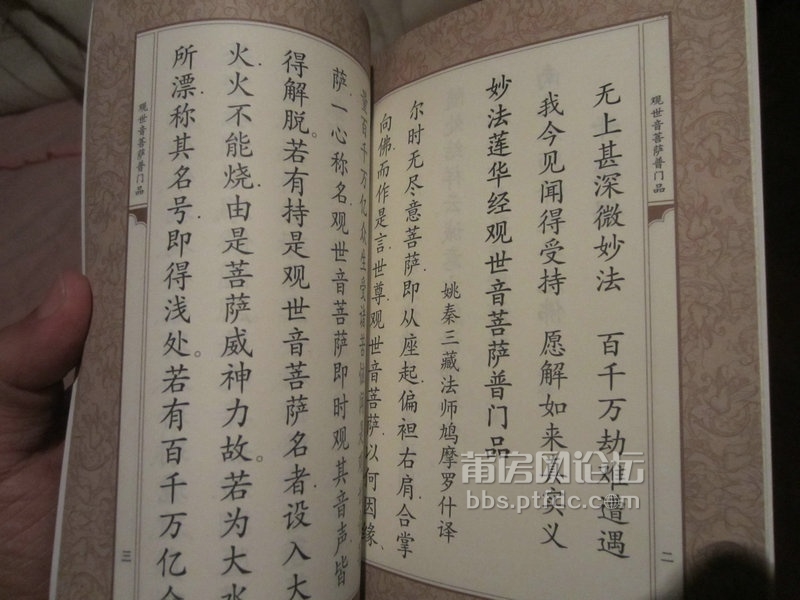 观世音菩萨普门品
无上甚深微妙法 百千万劫难遭遇
我今见闻得受持 愿解如来真实义
妙法莲华经观世音菩萨普门品
姚秦三藏法师鸠摩罗什译
尔时无尽意菩萨.即从座起.偏袒右肩.合掌
向佛.而作是言.世尊.观世音菩萨.以何因缘、
二
量百千万亿众生受诸苦恼
萨.一心称名.观世音菩萨即时观其音声皆
得解脱。若有持是观世音菩萨名者.设入大
火.火不能烧.由是菩萨威神力故。若为大水
所漂.称其名号.即得浅处。若有百千万亿众
观世音菩萨普门品
三
莆房网论坛
bbs.ptfdc.com